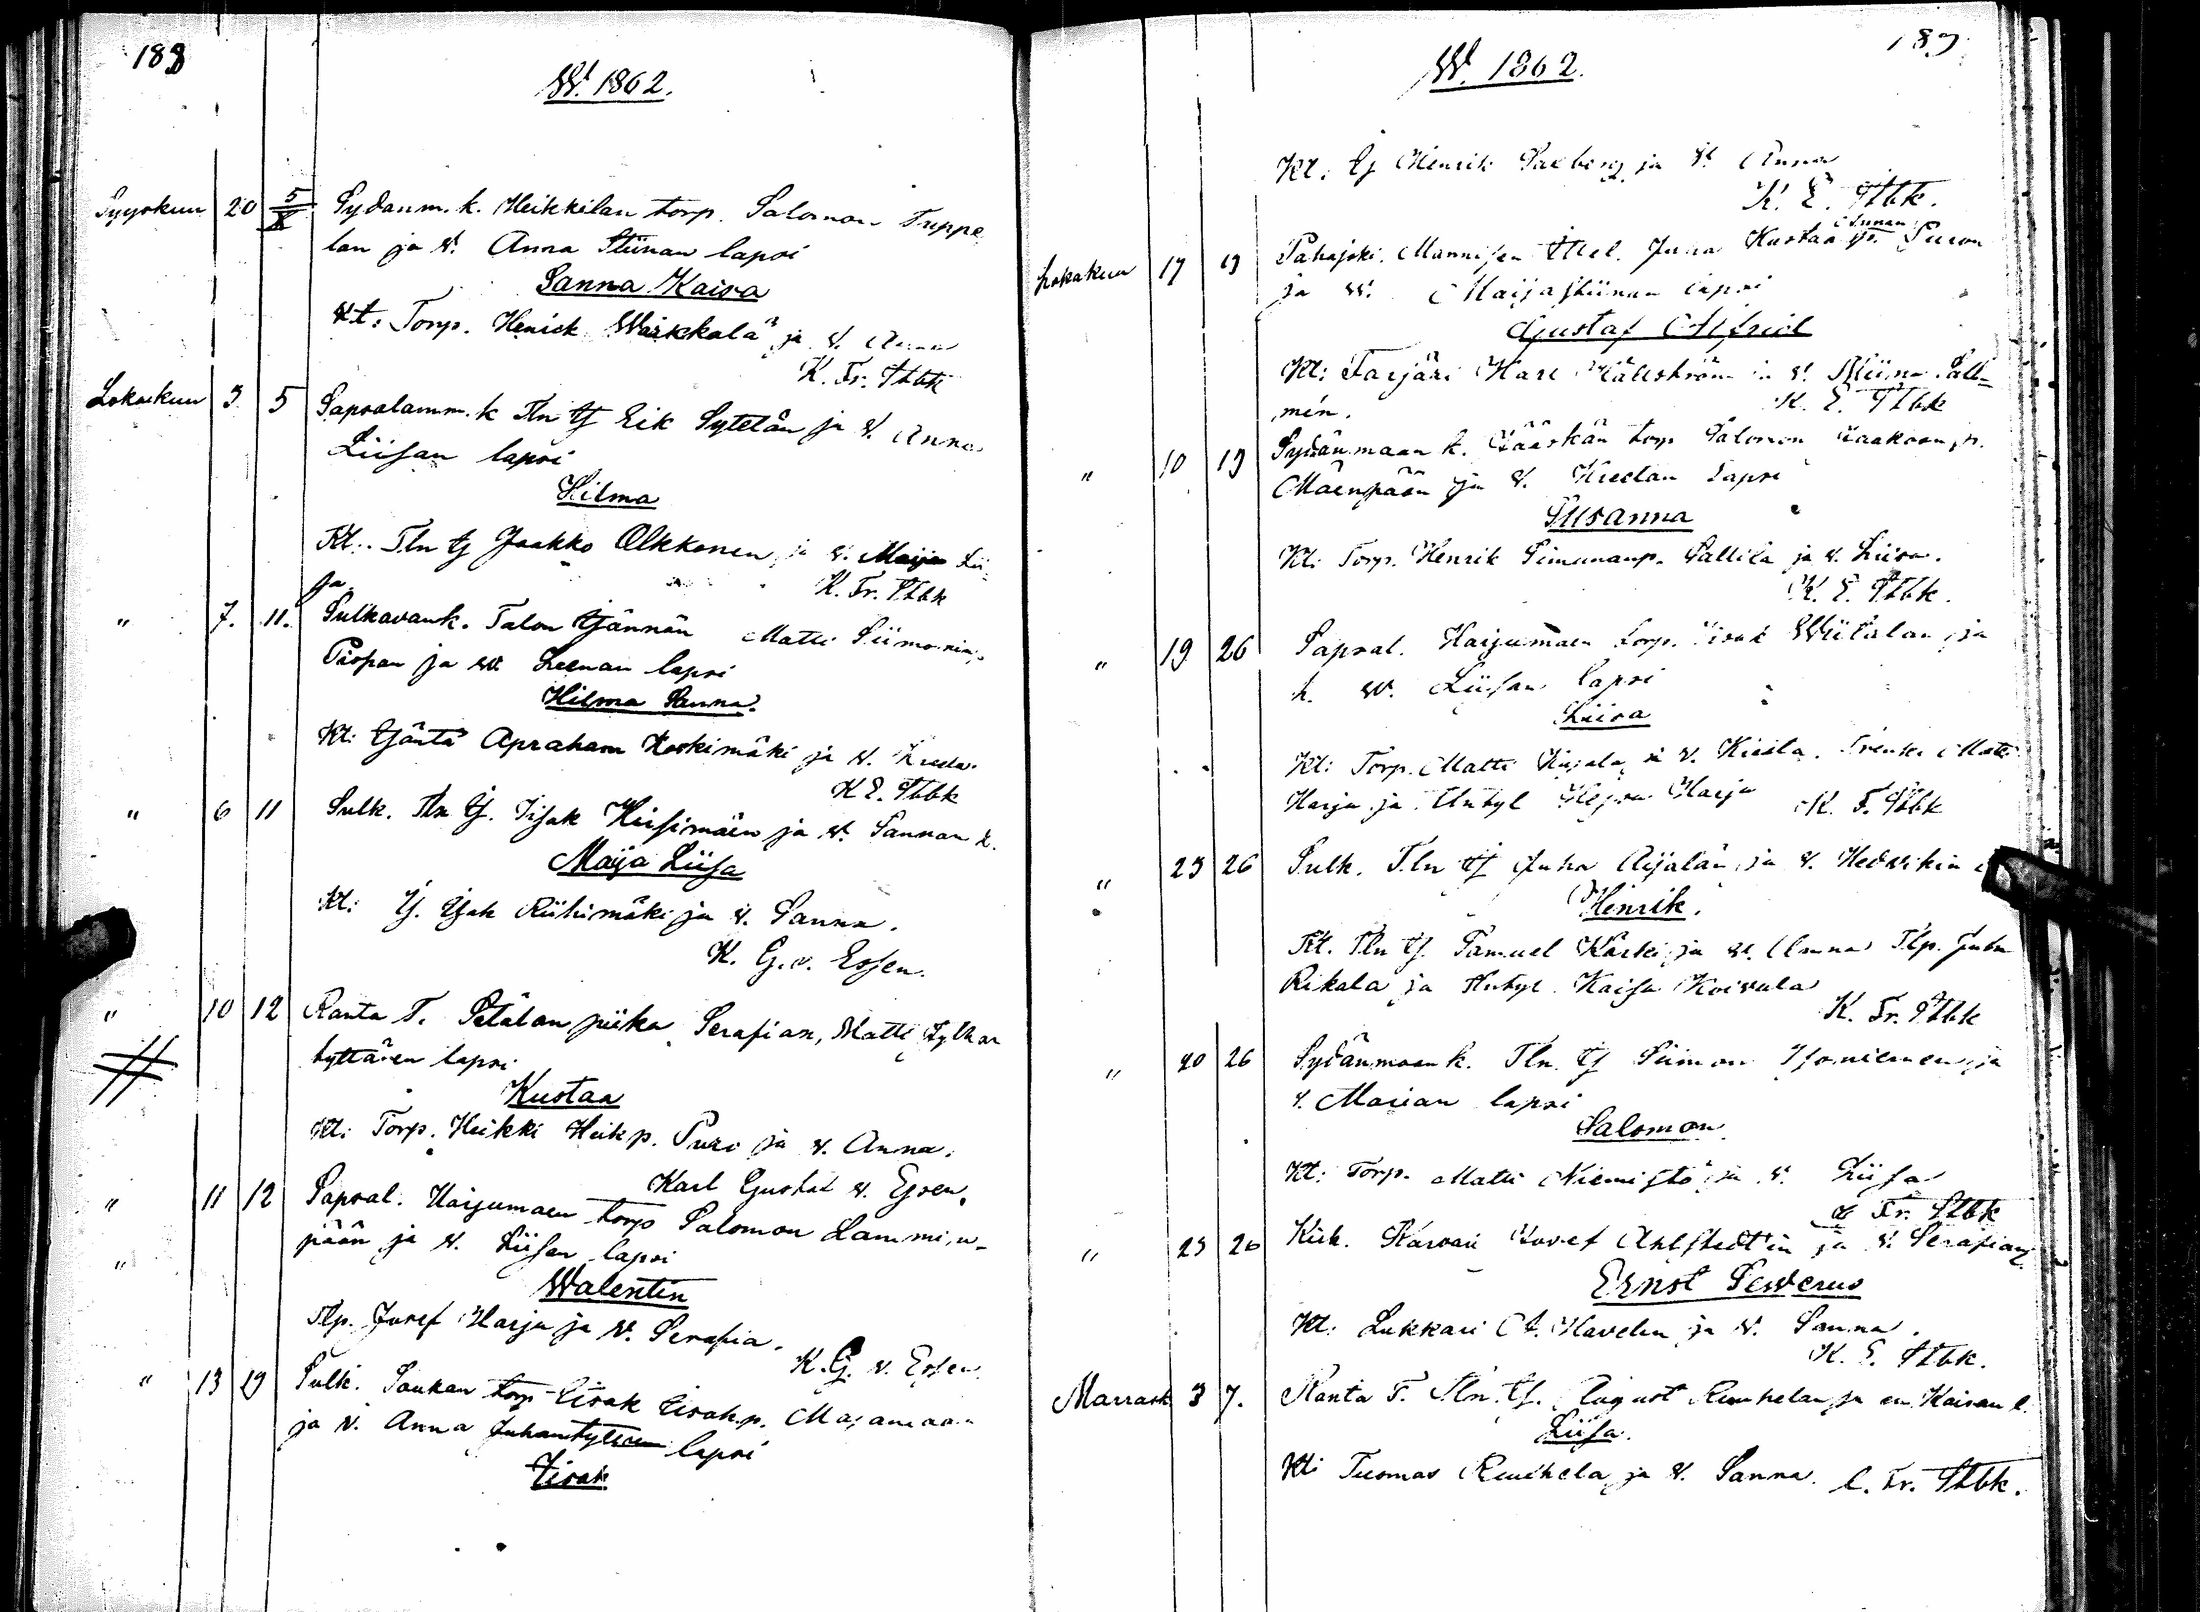 188
W. 1862.
Syyskun 20 5/X Sydanm. k. Heikkilan torp. Salomon Tuppe
lan ja V. Anna Stiinan lapsi
Sanna Kaisa
Kt: Torp. Henrik Warkkala ja V. Anna
K. Fr. Stbk
Lokakun 3. 5 Sapsalamm. k Tln tj Erik Sytelän ja V. Anna
Liisan lapsi
Hilma
Kt: Tln tj Jaakko Olkkonen ja V. Maija Lii-
sa
K. Fr. Stbk
" 7. 11. Sulkavank. Talon tjännän Matti Siimonin p.
ja W. Leenan lapsi
Hilma Sanna.
Kt: tjäntä Apraham Koskimäki ja V. Kreeta.
K E. Stbk
" 6 11 Sulk. Tln tj. Iisak Hirsimäen ja W. Sannan l.
Maija Liisa
Kt: Ij. Isak Riihimäki ja V. Sanna.
K. G. v. Essen.
" 10 12 Ranta T. Petälan piika Serafian, Matti
tyttären lapsi
Kustaa
Kt: Torp. Heikki Heik p. Puro ja V. Anna.
Karl Gustaf v. Essen.
" 11 12 Sapsal. Harjumaen torp Salomon Lammin-
pään ja V. Liisan lapsi
"
Walentin
Tlp. Josef Harju ja V. Serafia.
K. G. v. Essen
" 13 19 Sulk. Saukan torp Iisak Iisak p.
ja V. Anna Juhantyttären lapsi
Iisak
189
W. 1862.
Kt: Ij Henrik ja V. Anna
K. E. Stbk.
Lokakun 17 19 Pahajoki. Mannisen Juha Kustaa Junan p. Puron
ja W. Maijastiinan lapsi
Gustaf Alfrid
Kt: Farjäri Karl Hällström ja V. Miina Sall-
mén.
K. E. Stbk
" 10 19 Sydänmaan k. Jääskän torp Salomon Jaakoon p.
Mäenpään ja V. Kreetan lapsi
Susanna
Kt: Torp. Henrik Simunanp. Pallila ja V. Liisa.
K. E. Stbk.
" 19 26 Sapsal. Harjumaen torp. Iisak Wiitalan ja
h. W. Liisan lapsi
Liisa
Kt: Torp. Matti ja V. Kreeta. Trenki Matti
Harju ja Harju K. F. Stbk
" 23 26 Sulk. Tln tj Juha Aijalän ja V. Hedvikin
Henrik.
Kt. Tln tj. Samuel Kärki ja V. Anna Tlp. Juha
Rikala ja Kaisa Koivula
K. Fr. Stbk
" 20 26 Sydänmaan k. Tln. tj Siimon Isoniemen ja
V. Marian lapsi
Salomon
Kt: Torp. Matti Niemistö ja V. Liisa
Fr. Stbk
" 23 26 Kirk. Karvari Josef Ahlstedt'in ja V. Serafian
Ernst Sewerus
Kt: Lukkari A. Havelin ja V. Sanna.
K. E. Stbk.
Marrask 3 7. Ranta T. Tln. tj. August Ruuhelan ja em. Kaisan l.
Liisa.
Kt: Tuomas Ruuhela ja V. Sanna. C. Fr. Stbk.